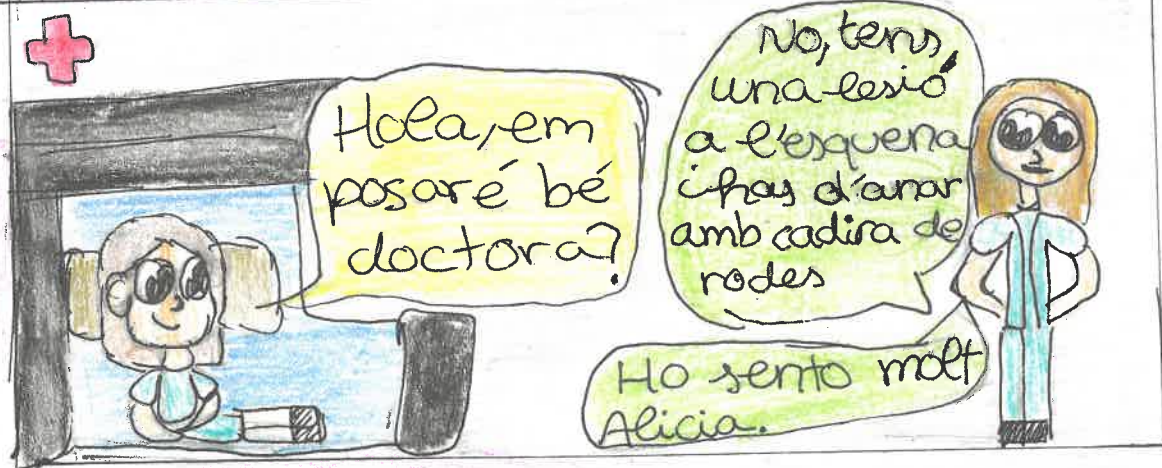 Hola, em
posaré bé
doctora?
No, tens,
una lesió
a l'esquena
i has d'anar
amb cadira de
rodes
Ho sento molt
Alicia.